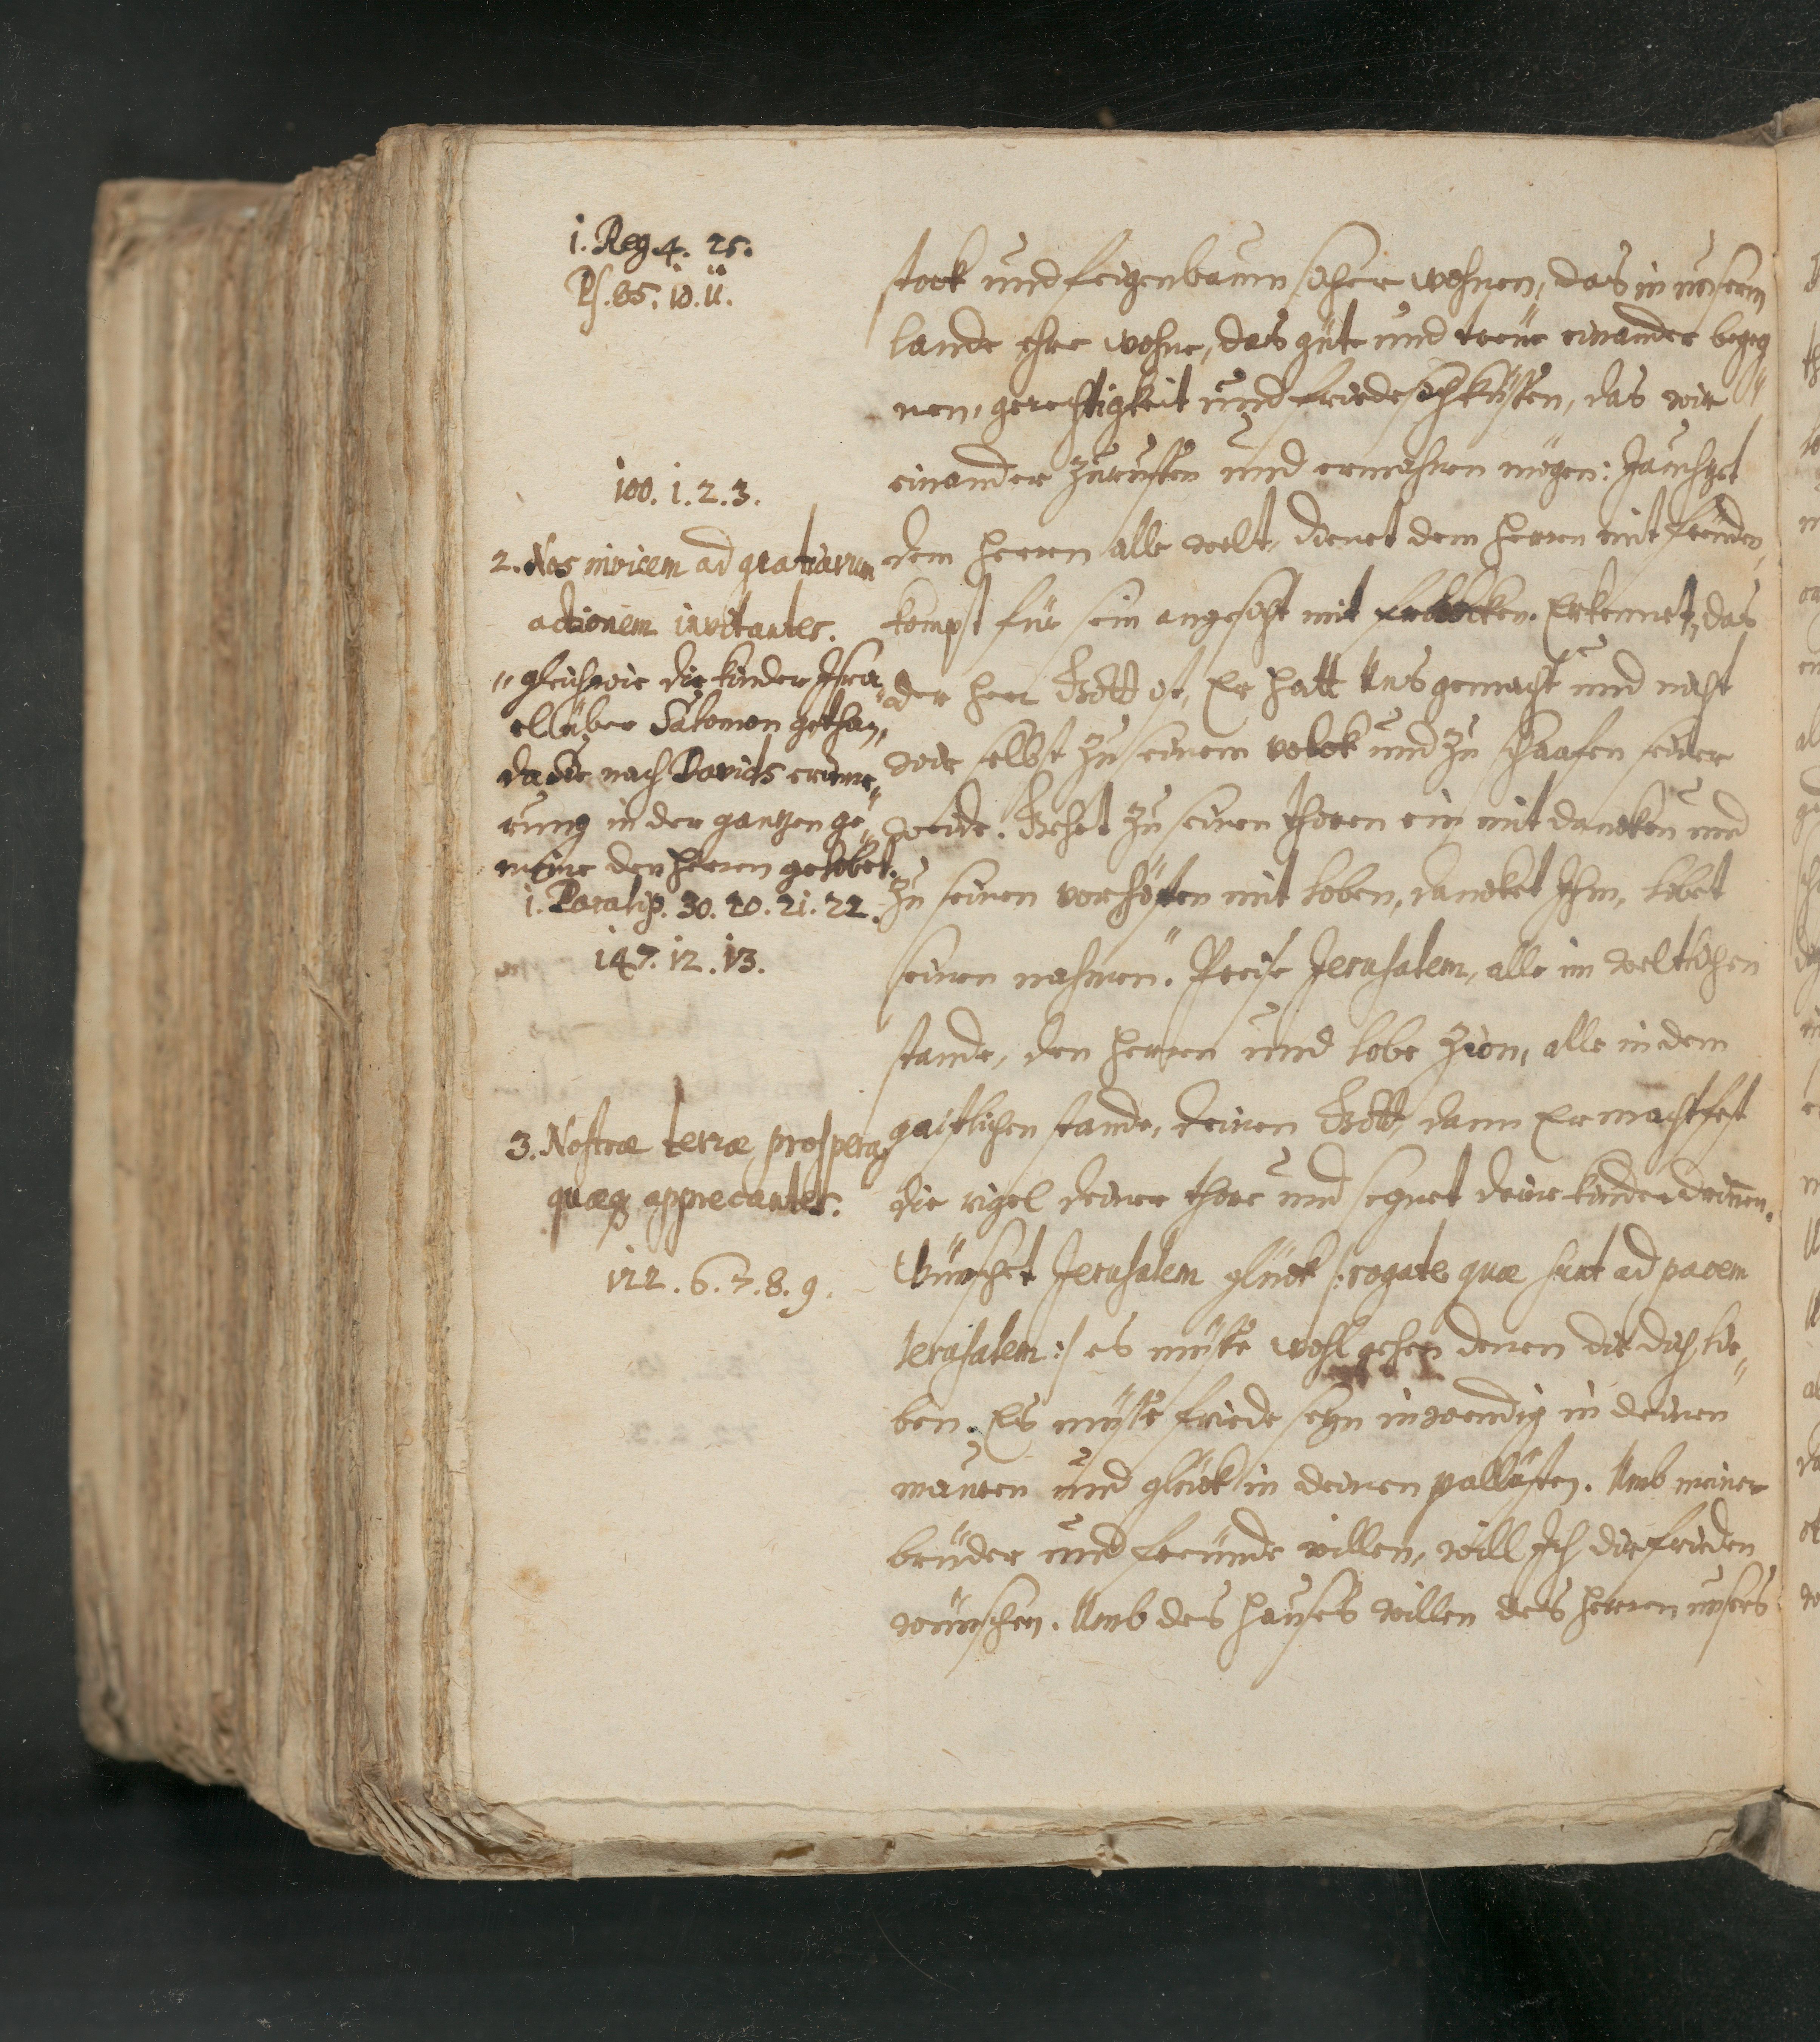 1. Reg. 4. 25.
Ps. 85. 10. 11.
100. 1. 2. 3.
2. Nos invicem ad gratiarum
actionem invitantes.
" gleichwie die kinder Isra
el über Salomon gethan,
da sie nach Davids erinne„
rung in der gantzen ge„
meine den Herren gelobet.
1. Paralip. 30. 20. 21. 22.
147. 12. 13.
3. Nostræ terræ prospera
quæq; apprecantes.
122. 6. 7. 8. 9.
stock und feigenbaum sicher wohnen, das in unserm
lande ehre wohne, das güte und treue einander begeg„
nen, gerechtigkeit und friede sich küssen, das wir
einander zuruffen und ermahnen mögen: Jauchzet
dem Herren alle welt, dienet dem Herren mit freuden,
kompt für sein angesicht mit frolocken. Erkennet, das
der Herr Gott ist, Er hatt Uns gemacht und nicht
wir selbst zu seinem volck und zu schaafen seiner
weide. Gehet zu seinen thoren ein mit dancken und
zu seinen vorhöffen mit loben, dancket Ihm, lobet
seinen nahmen. Preise Jerusalem, alle im weltlichen
stande, den Herren und lobe Zion, alle in dem
geistlichen stande, deinen Gott, dann Er macht fest
die rigel deiner thore und segnet deine kinder drinnen.
Wünschet Jerusalem glück /: rogate quæ sunt ad pacem
Jerusalem :/ es müsse wohl gehen denen die dich lie„
ben. Es müsse friede seyn inwendig in deinen
mauren und glück in deinen pallästen. Umb meiner
brüder und freunde willen, will Ich dir frieden
wünschen. Umb des hauses willen des Herren unsers